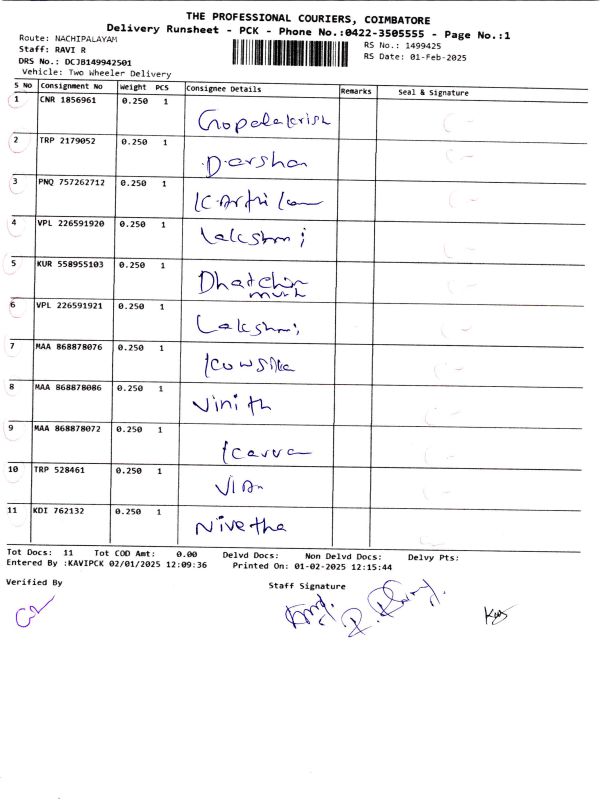 THE PROFESSIONAL COURIERS, COIMBATORE
Delivery Runsheet - PCK - Phone No.:0422-3505555 - Page No.:1
Route: NACHIPALAYAM
RS No.: 1499425
Staff: RAVI R
RS Date: 01-Feb-2025
DRS No.: DCJB149942501
Vehicle: Two Wheeler Delivery
S No Consignment No Weight PCS Consignee Details Remarks Seal & Signature
1 CNR 1856961 0.250 1 Gopalakrish
2 TRP 2179052 0.250 1 Darshan
3 PNQ 757262712 0.250 1 Karthikan
4 VPL 226591920 0.250 1 Lakshmi
5 KUR 558955103 0.250 1 Dhatchin
murth
6 VPL 226591921 0.250 1 Lakshmi
7 MAA 868878076 0.250 1 Kowsika
8 MAA 868878086 0.250 1 Vinith
9 MAA 868878072 0.250 1
10 TRP 528461 0.250 1
11 KDI 762132 0.250 1 Nivetha
Tot Docs: 11 Tot COD Amt: 0.00 Delvd Docs: Non Delvd Docs: Delvy Pts:
Entered By :KAVIPCK 02/01/2025 12:09:36 Printed On: 01-02-2025 12:15:44
Verified By Staff Signature